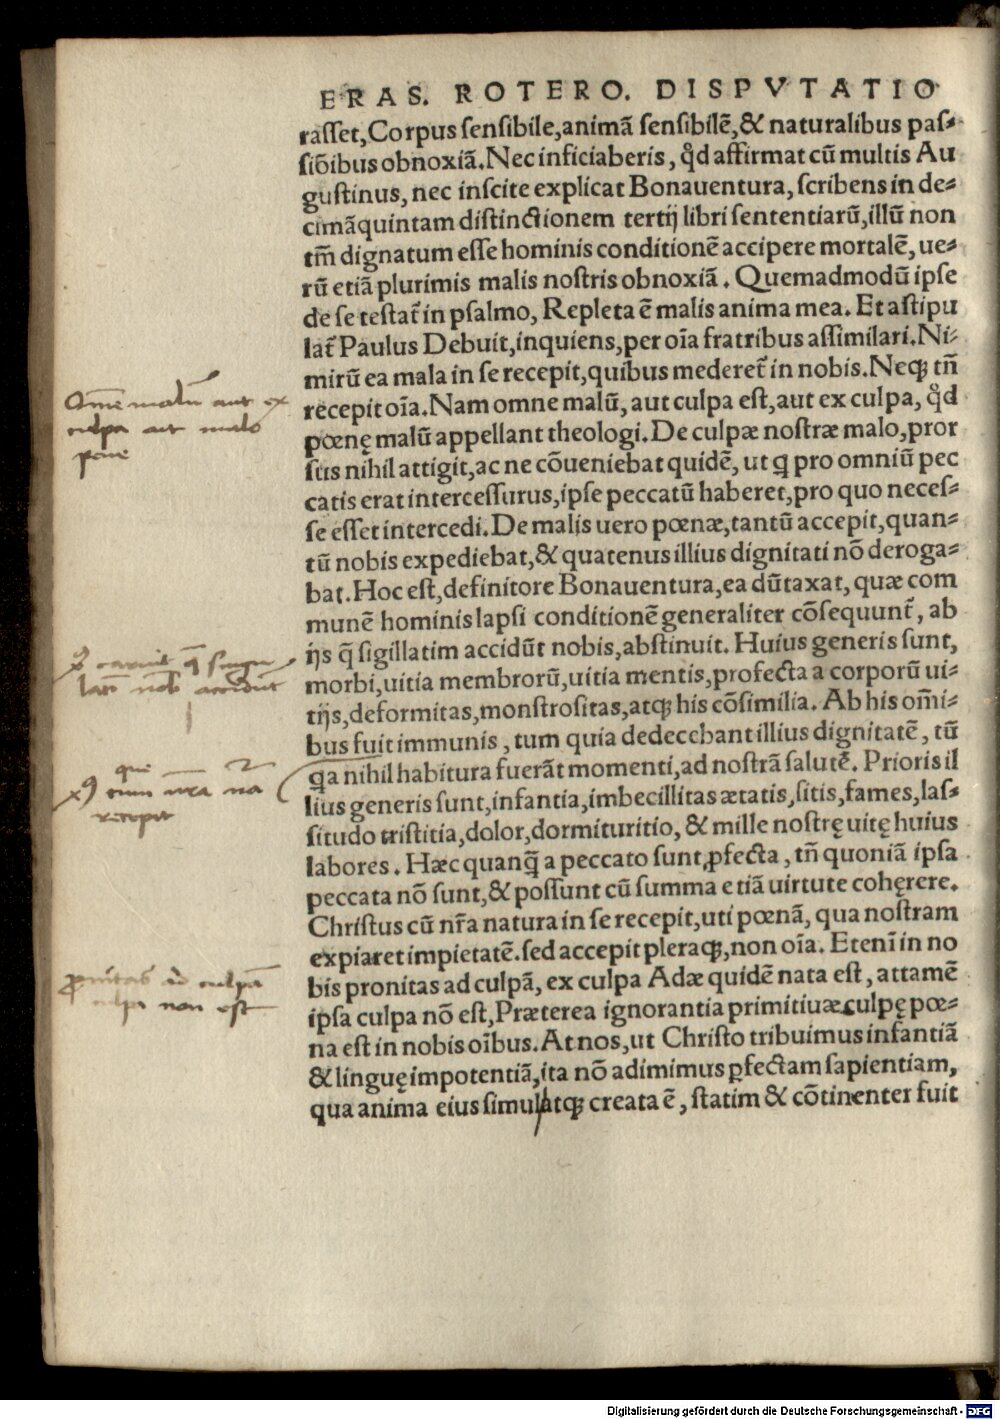 ERAS. ROTERO. DISPVTATIO
rasset, Corpus sensibile, animā sensibilē, & naturalibus pas⸗
siōibus obnoxiā. Nec inficiaberis, qd̉ affirmat cū multis Au
gustinus, nec inscite explicat Bonauentura, scribens in de⸗
cimāquintam distinctionem tertij libri sententiarū, illū non
tm̄ dignatum esse hominis conditionē accipere mortalē, ue⸗
rū etiā plurimis malis nostris obnoxiā. Quemadmodū ipse
de se testat᷑ in psalmo, Repleta ē malis anima mea. Et astipu
lat᷑ Paulus Debuit, inquiens, per oīa fratribus assimilari. Ni⸗
mirū ea mala in se recepit, quibus mederet᷑ in nobis. Neqꝫ tñ
recepit oīa. Nam omne malū, aut culpa est, aut ex culpa, qd̉
pœnę malū appellant theologi. De culpæ nostræ malo, pror
sus nihil attigit, ac ne cōueniebat quidē, ut q pro omniū pec
catis erat intercessurus, ipse peccatū haberet, pro quo neces⸗
se esset intercedi. De malis uero pœnæ, tantū accepit, quan⸗
tū nobis expediebat, & quatenus illius dignitati nō deroga⸗
bat. Hoc est, definitore Bonauentura, ea dūtaxat, quæ com
munē hominis lapsi conditionē generaliter cōsequunt᷑, ab
ijs q̄ sigillatim accidūt nobis, abstinuit. Huius generis sunt,
morbi, uitia membrorū, uitia mentis, profecta a corporū ui⸗
tijs, deformitas, monstrositas, atqꝫ his cōsimilia. Ab his om̄i⸗
bus fuit immunis, tum quia dedecebant illius dignitatē, tū
qa nihil habitura fuerāt momenti, ad nostrā salutē. Prioris il
lius generis sunt, infantia, imbecillitas ætatis, sitis, fames, las⸗
situdo tristitia, dolor, dormituritio, & mille nostrę uitę huius
labores. Hæc quanq̄ a peccato sunt ꝓfecta, tñ quoniā ipsa
peccata nō sunt, & possunt cū summa etiā uirtute cohęrere.
Christus cū nr̄a natura in se recepit, uti pœnā, qua nostram
expiaret impietatē. sed accepit pleraqꝫ, non oīa. Etenī in no
bis pronitas ad culpā, ex culpa Adæ quidē nata est, attamē
ipsa culpa nō est, Præterea ignorantia primitiuæ culpę pœ⸗
na est in nobis oībus. At nos, ut Christo tribuimus infantiā
& linguę impotentiā, ita nō adimimus ꝑfectam sapientiam,
qua anima eius simulatqꝫ creata ē, statim & cōtinenter fuit
Om̄e malū aut ex
culpa aut malo
pene
accidūt
recepit
pronitas ad culpā
culpa non est
Digitalisierung gefördert durch die Deutsche Forschungsgemeinschaft - DFG